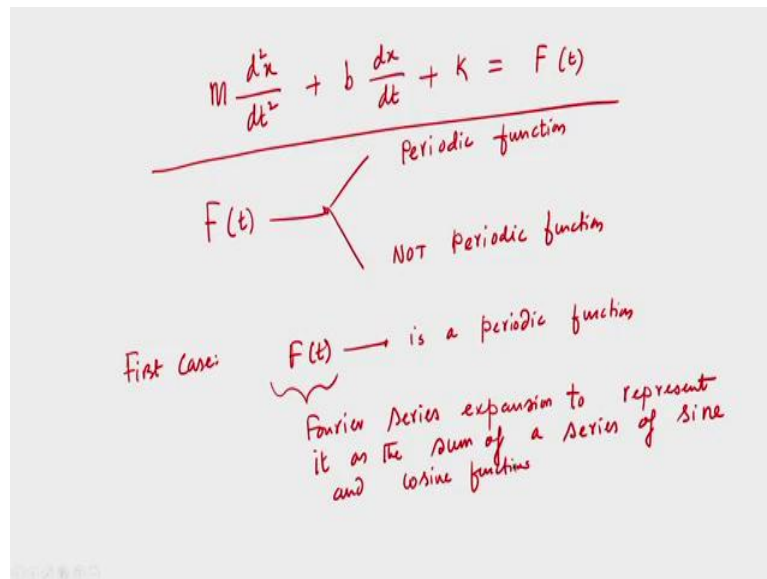 m d²x/dt² + b dx/dt + k = F(t)
Periodic function
F(t)
NOT Periodic function
First Case: F(t) → is a periodic function
Fourier series expansion to represent
it as the sum of a series of sine
and cosine functions